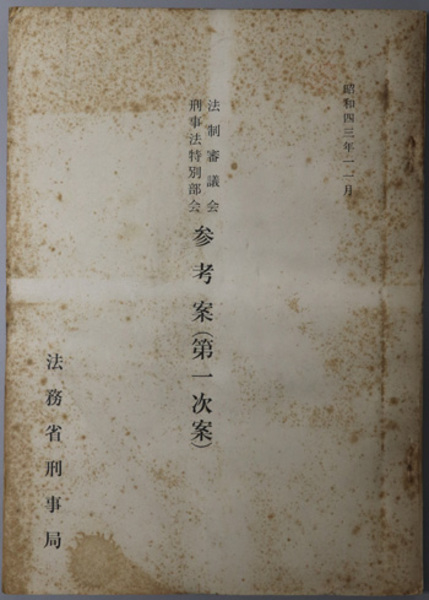 昭和四三年一一月
法制審議会
刑事法特別部会
参考案(第一次案)
法務省刑事局